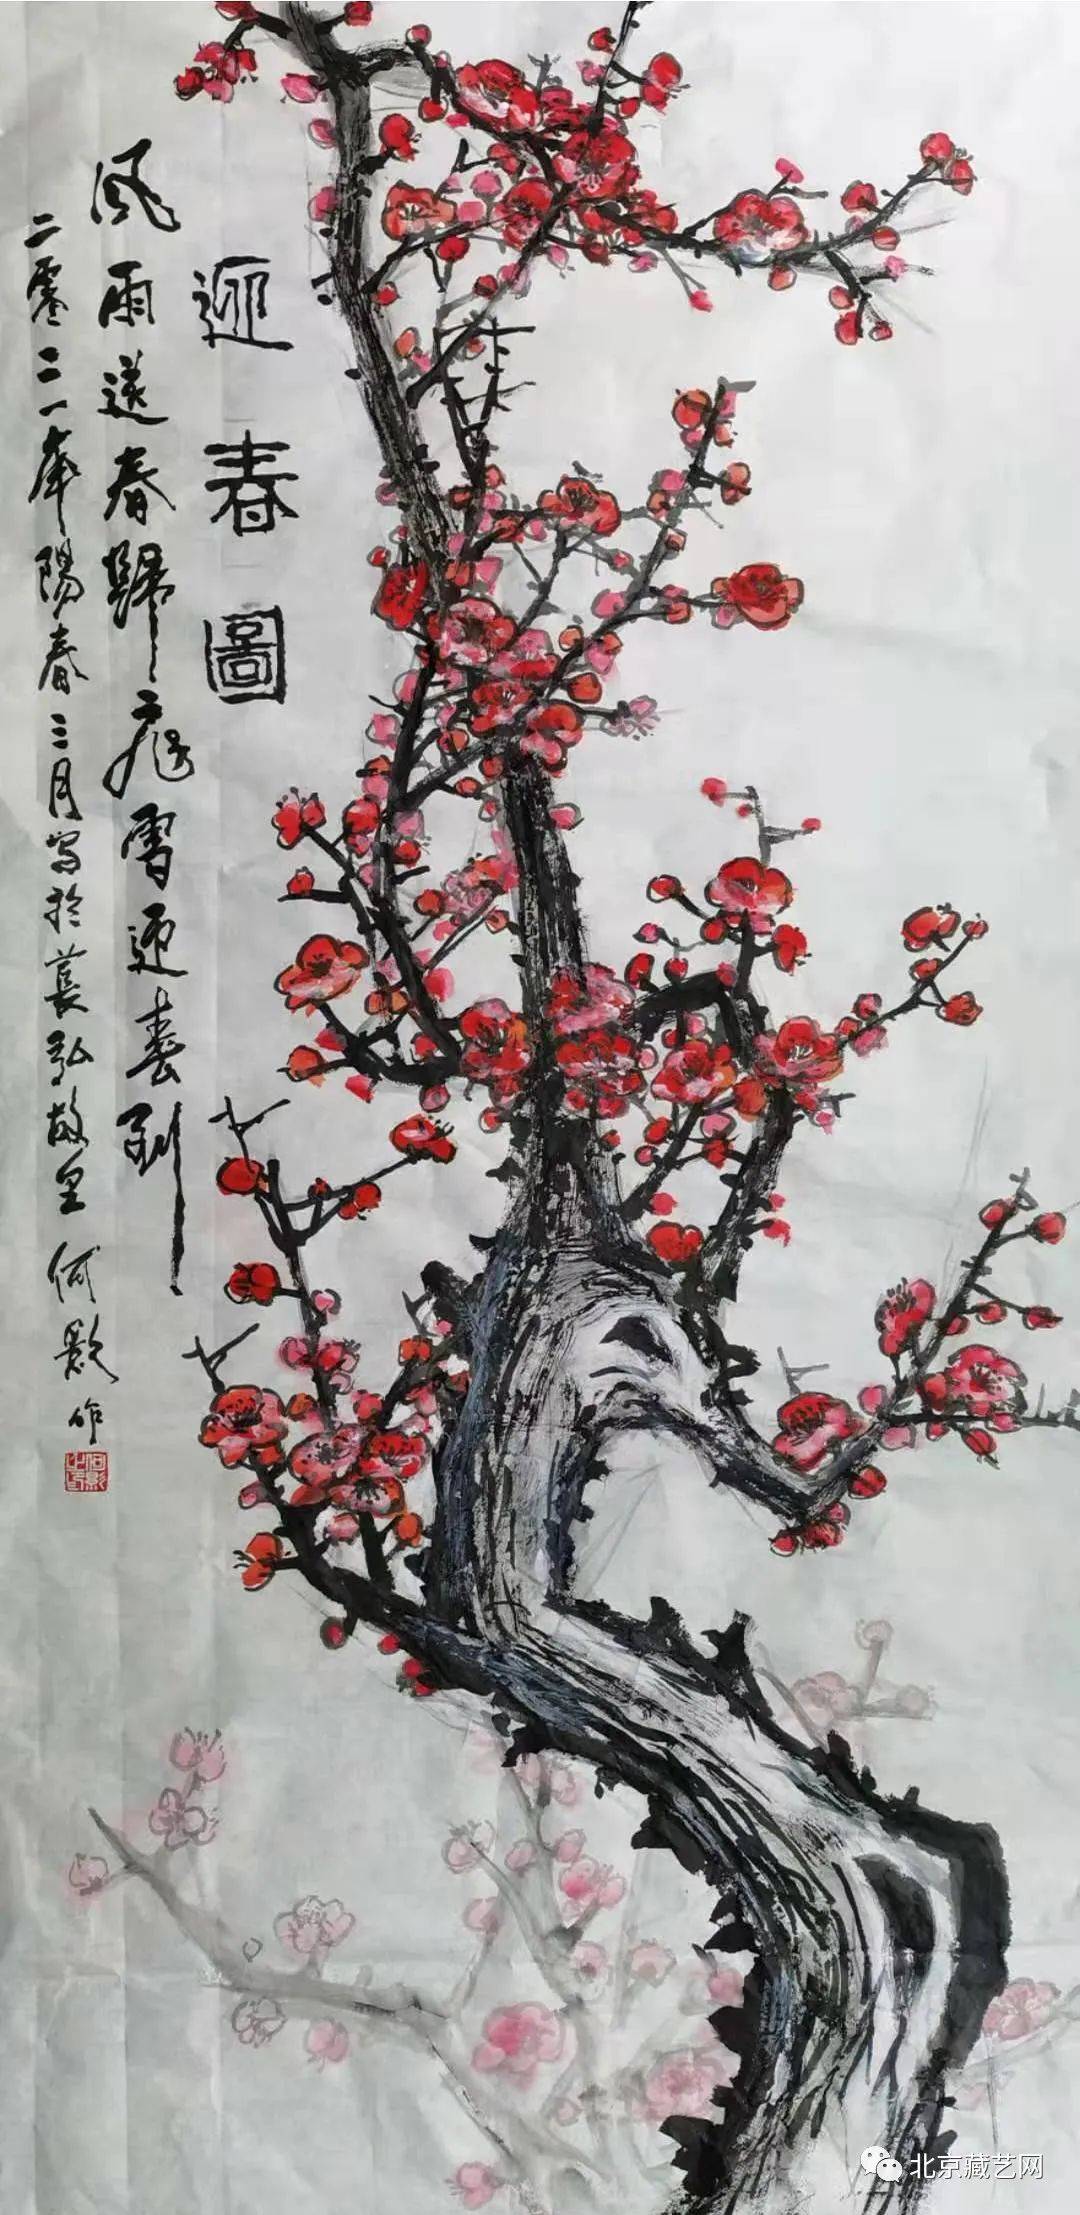 迎春圖
風雨送春歸飛雪迎春到
二零二一年陽春三月寫於萇弘故里何影作
何影之印
北京藏艺网